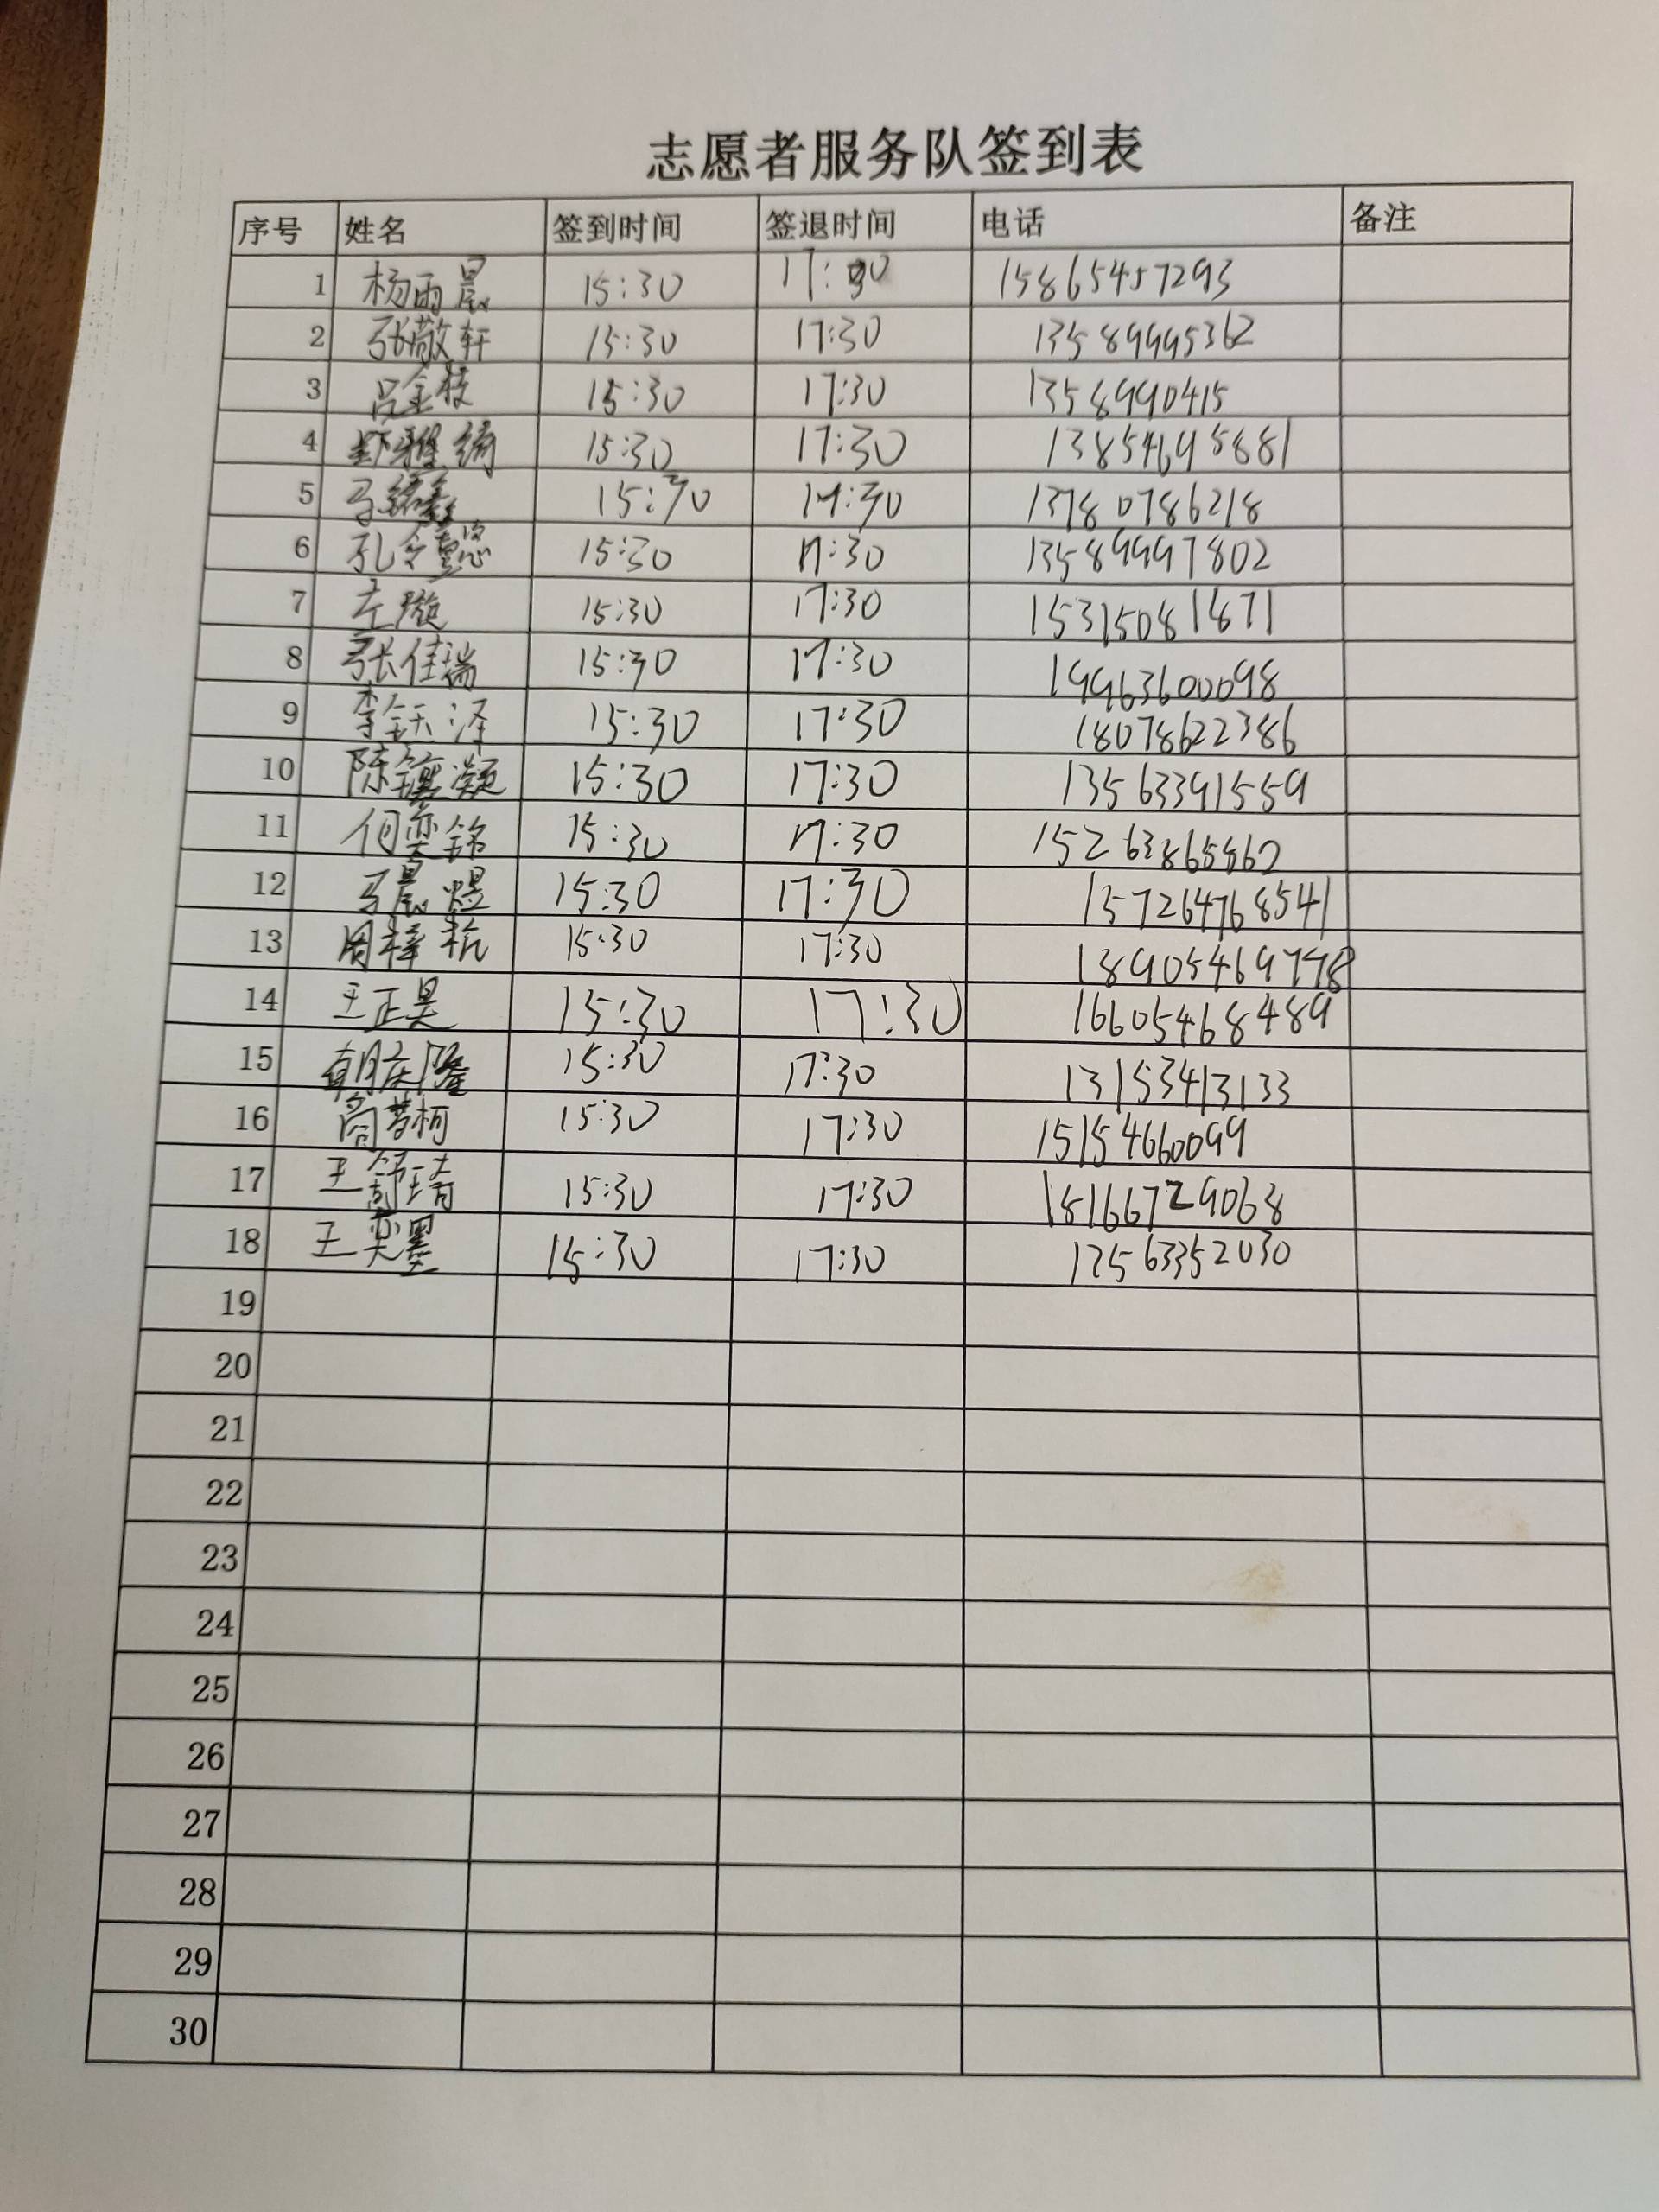 志愿者服务队签到表
序号 姓名 签到时间 签退时间 电话 备注
1 杨雨晨 15:30 17:30 15865457293
2 张敬轩 15:30 17:30 13589995362
3 吕金枝 15:30 17:30 1358990415
4 15:30 17:30 13854695881
5 15:30 17:30 13780786218
6 孔令慧 15:30 17:30 13589997802
7 左璇 15:30 17:30 15315081871
8 张佳瑞 15:30 17:30 19963600098
9 李钰泽 15:30 17:30 18078622386
10 陈 凝 15:30 17:30 13563391559
11 何奕铭 15:30 17:30
12 马晨煜 15:30 17:30 157264768541
13 周梓杭 15:30 17:30 18905469778
14 王正昊 15:30 17:30 16605468489
15 15:30 17:30 13153413133
16 15:30 17:30 15154660099
17 王 琦 15:30 17:30 18166729068
18 王奕墨 15:30 17:30 13563352030
19
20
21
22
23
24
25
26
27
28
29
30